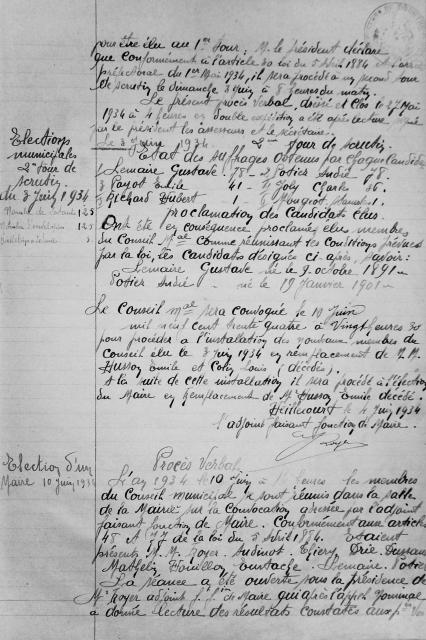 pour être élu au 1er Tour, M. le président déclare
que conformément à l'article 30 loi du 5 Avril 1884 et l'arrêté
préfectoral du 1er Mai 1934, il sera procédé à un second Tour
de scrutin le dimanche 3 juin à 8 heures du matin.
Le présent procès Verbal, dressé et Clos le 27 Mai
1934 à 4 heures en double expédition a été après lecture signé
par le président les assesseurs et le secrétaire.
Elections
municipales
2me Tour de
scrutin
du 3 Juin 1934
Le 3 Juin 1934 2me Tour de scrutin.
Etat des suffrages Obtenus par Chaque Candidat
Lemaire Gustave 78 Potier André 78.
3 Payot Emile 41 Joly Charles 36.
Richard Hubert 1 Mougiot 1.
proclamation des Candidats Elus.
Ont Eté en conséquence proclamés élus membres
du Conseil Mal Comme réunissant les Conditions prévues
par la loi, les Candidats désignés ci après, savoir:
Lemaire Gustave né le 9 octobre 1891
Potier André né le 19 Janvier 1901
Le Conseil mal sera convoqué le 10 Juin
mil neuf cent trente quatre à Vingt heures 30
pour procéder à l'installation des nouveaux membres du
Conseil élu le 3 juin 1934 en remplacement de M. M.
Husson Emile et Louis (décédés).
A la suite de cette installation il sera procédé à l'élection
du Maire en remplacement de Mr Husson Emile décédé.
le 4 Juin 1934
l'adjoint faisant fonction de Maire.
Election d'un
Maire 10 Juin 1934
Procès Verbal
L'an 1934 le 10 Juin à heures les membres
du Conseil municipal se sont réunis dans la salle
de la Mairie sur la Convocation adressée par l'adjoint
faisant fonction de Maire. Conformément aux articles
48 et 77 de la loi du 5 Avril 1884. Etaient
présents M. M. Royer. Audinot. Thiery.
Mathelin Eustache. Lemaire. Potier
La séance a été ouverte sous la présidence de
Mr Royer adjoint f. f. de Maire qui après l'appel nominal
a donné lecture des résultats constatés aux